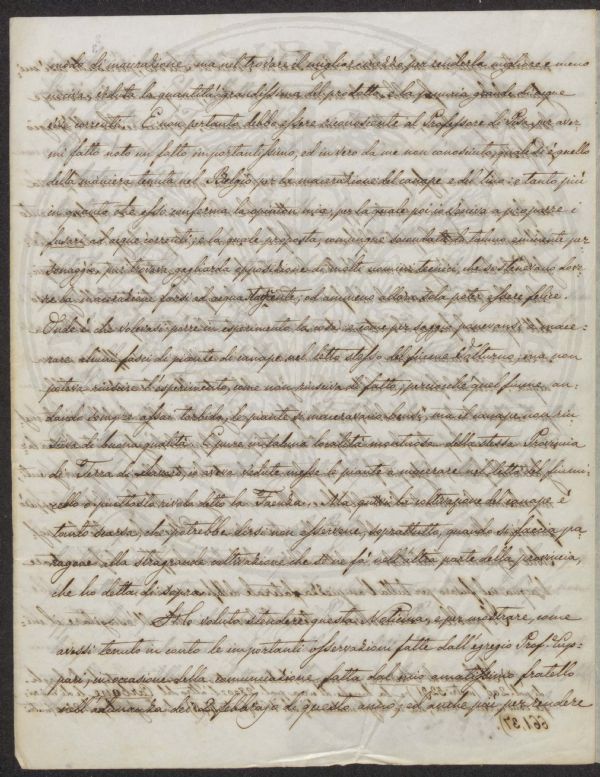 modo di macerazione, ma nel trovare il miglior mezzo per renderla migliore e meno
nociva, veduta la quantità grandissima del prodotto, e la penuria grande di acque
vive correnti. E non pertanto debbo essere riconoscente al Professore di Pisa, per aver-
mi fatto noto un fatto importantissimo, ed in vero da me non conosciuto, quale si è quello
della maniera tenuta nel Belgio per la macerazione del canape e del lino: e tanto più
in quanto che esso conferma la opinion mia, per la quale poi io veniva a proporre i
fusari ad acque correnti; e la quale proposta, comunque secondata da talune eminente per-
sonaggio, pur trovava gagliarda opposizione di molti uomini tecnici, che sostenevano dove-
re la macerazione farsi ad acqua stagnante; ed ammeno allora sola poter essere felice.
Onde è che volevasi porre in esperimento la cosa, e come per saggio ponevansi a mace-
rare alcuni fasci di piante di canape nel letto stesso del fiume Volturno, ma non
poteva riuscire l'esperimento, come non riusciva di fatto, perciocchè quel fiume, an-
dando sempre assai torbido, le piante si maceravano bensì, ma il canape non riu-
sciva di buona qualità. Eppure in talune località montuosa della stessa Provincia
di Terra di Lavoro, io aveva vedute messe le piante a macerare nel letto del fiumi-
cello o piuttosto rivolo detto la                 Ma quivi la coltivazione del canape è
tanto scarsa, che potrebbe dirsi non esservene, soprattutto, quando si faccia pa-
ragone alla stragrande coltivazione che se ne fà nell'altra parte della provincia,
che ho detta di sopra.
Ho voluto stendere questa Notizia, e per mostrare, come
avessi tenuto in conto le importanti osservazioni fatte dall'egregio Prof.
in occasione della comunicazione, fatta dal mio amatissimo fratello
nell'adunanza de'      Febbrajo di questo anno; ed anche poi per rendere